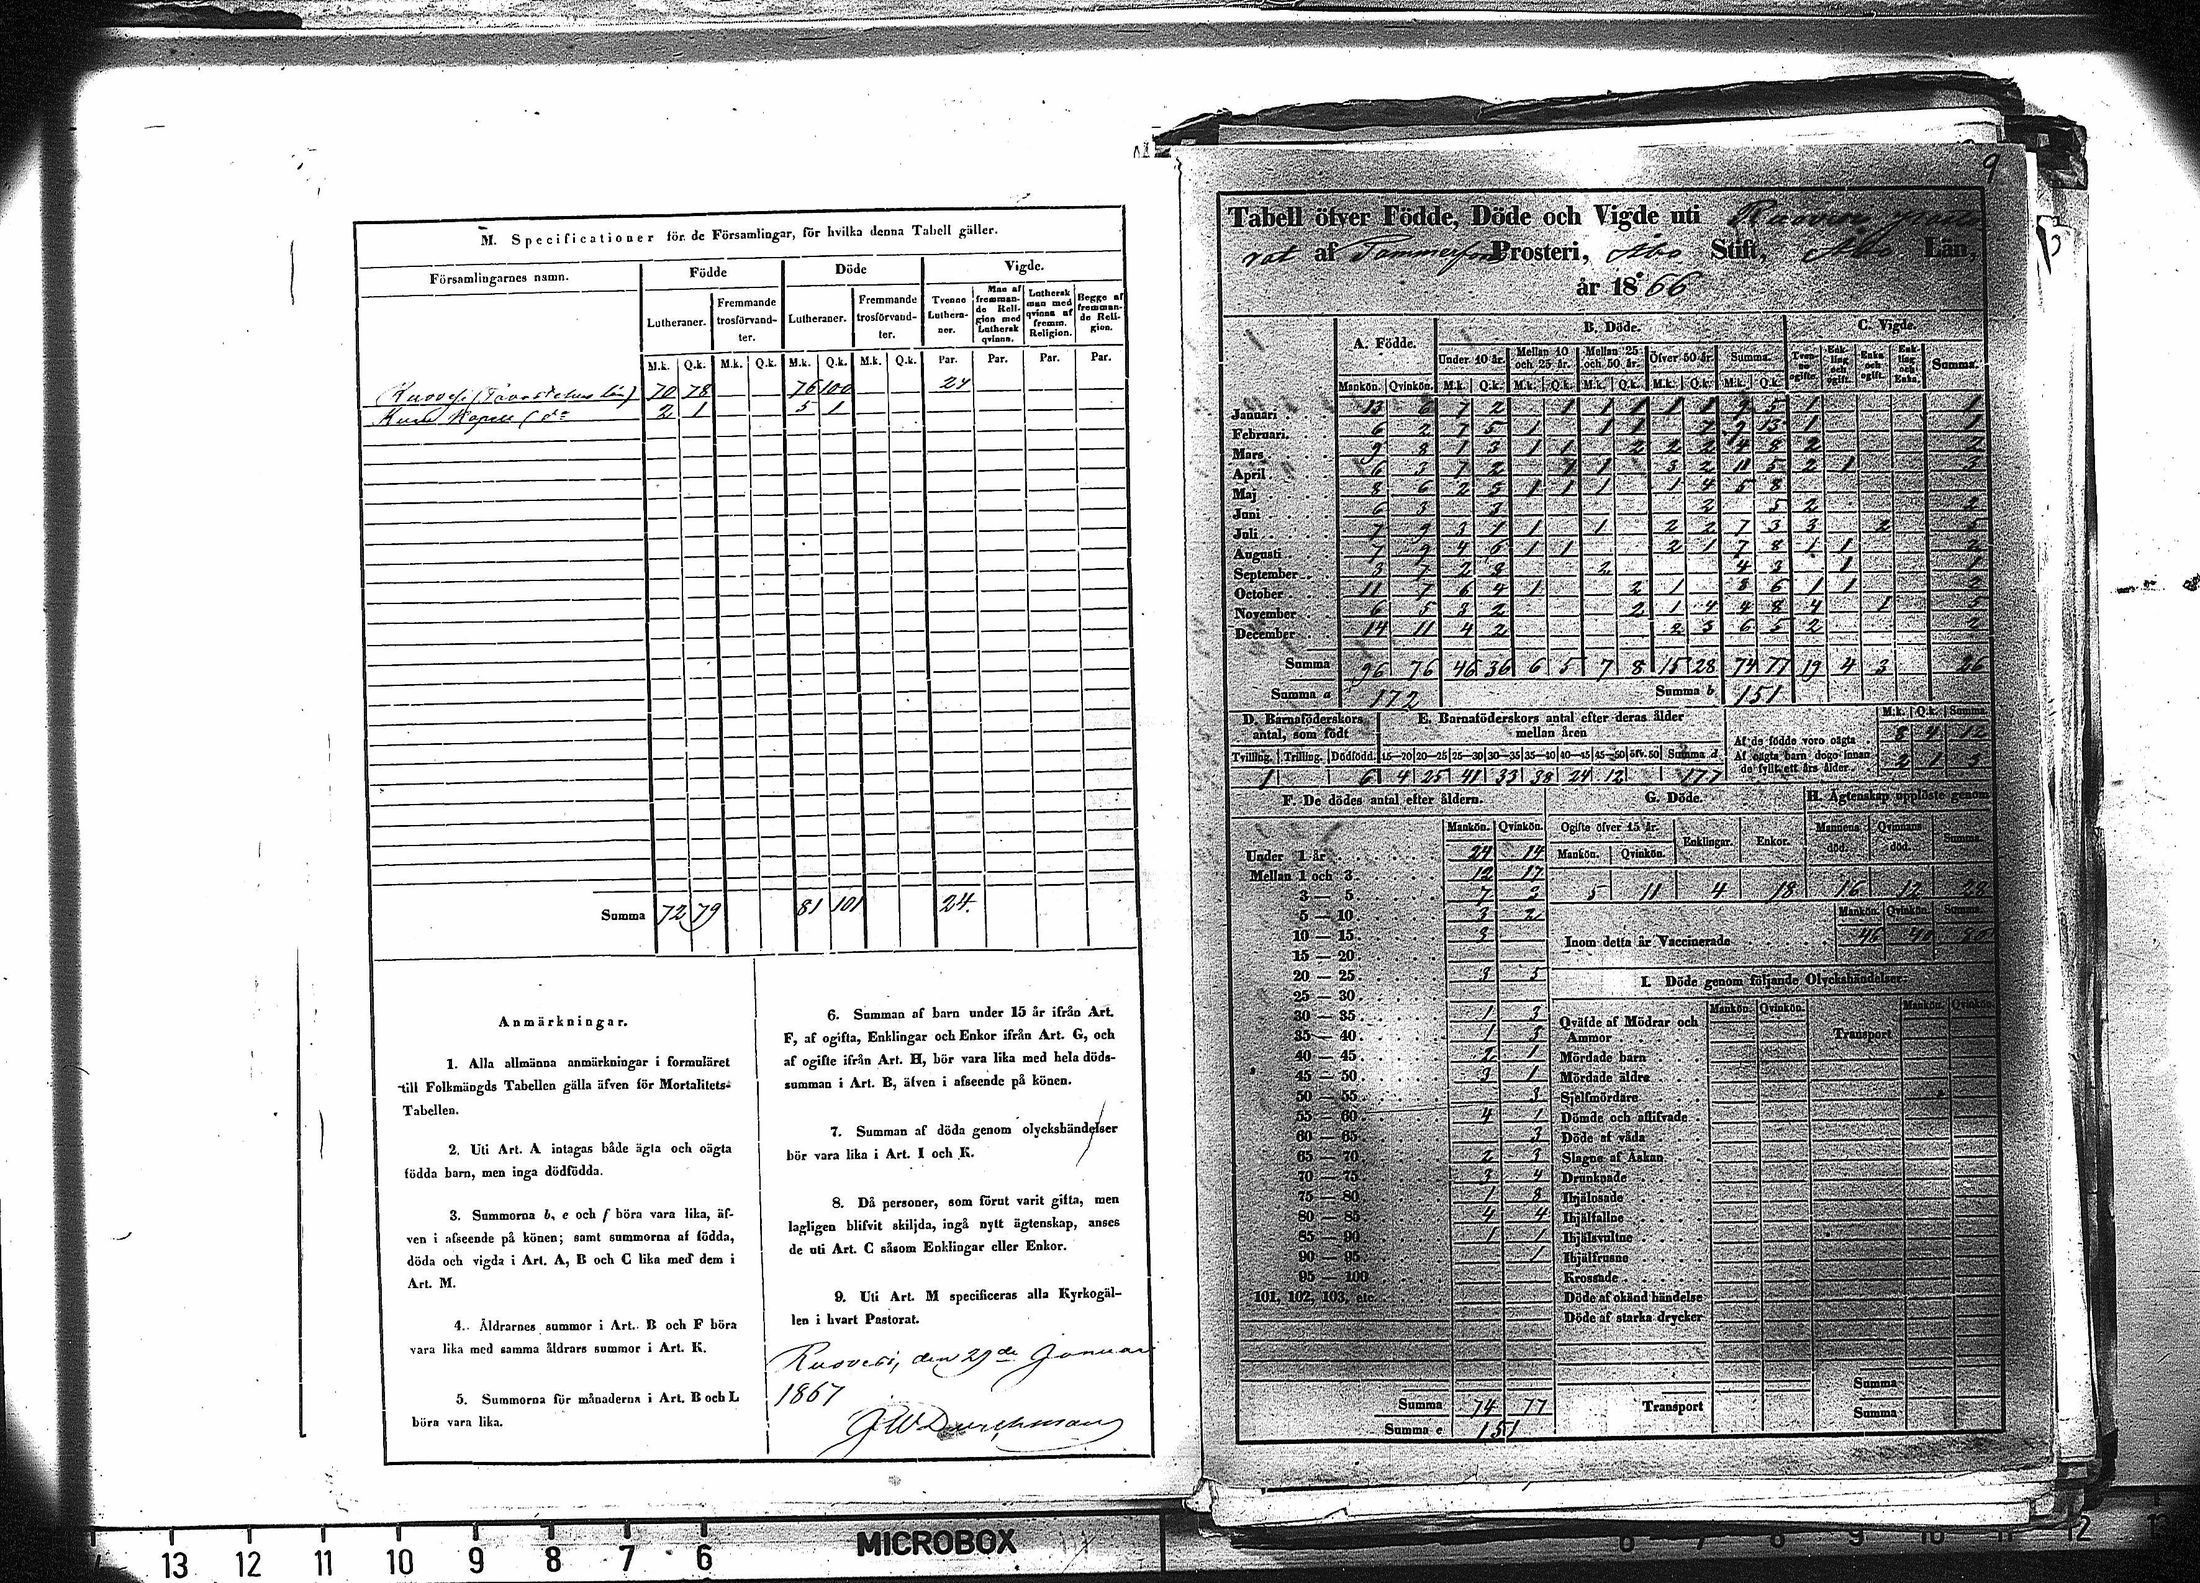 M. Specificationer för de Församlingar, för hvilka denna Tabell gäller.
Församlingarnes namn. Födde Döde Vigde.
Lutheraner. Fremmande trosförvandter. Lutheraner. Fremmande trosförvandter. Tvenne Lutheraner. Man af fremmande Religion med Luthersk qvinna. Luthersk man med qvinna af fremm. Religion. Begge af fremmande Religion.
M.k. Q.k. M.k. Q.k. M.k. Q.k. M.k. Q.k. Par. Par. Par. Par.
Ruovesi (Tavastehus län) 70 78 76 100 24
Kuru Kapell (d:o 2 1 5 1
Summa 72 79 81 101 24.
Anmärkningar.
1. Alla allmänna anmärkningar i formuläret
till Folkmängds Tabellen gälla äfven för Mortalitets-
Tabellen.
2. Uti Art. A intagas både ägta och oägta
födda barn, men inga dödfödda.
3. Summorna b, e och f böra vara lika, äf-
ven i afseende på könen; samt summorna af födda,
döda och vigda i Art. A, B och C lika med dem i
Art. M.
4. Åldrarnes summor i Art. B och F böra
vara lika med samma åldrars summor i Art. K.
5. Summorna för månaderna i Art. B och L
böra vara lika.
6. Summan af barn under 15 år ifrån Art.
F, af ogifta, Enklingar och Enkor ifrån Art. G, och
af ogifte ifrån Art. H, bör vara lika med hela döds-
summan i Art. B, äfven i afseende på könen.
7. Summan af döda genom olyckshändelser
bör vara lika i Art. I och K.
8. Då personer, som förut varit gifta, men
lagligen blifvit skiljda, ingå nytt ägtenskap, anses
de uti Art. C såsom Enklingar eller Enkor.
9. Uti Art. M specificeras alla Kyrkogäl-
len i hvart Pastorat.
Ruovesi, den 29de Januari
1867
9
Tabell öfver Födde, Döde och Vigde uti Ruovesi
rat af Tammerfors Prosteri, Åbo Stift, Åbo Län,
år 1866
A. Födde. B. Döde. C. Vigde.
Under 10 år. Mellan 10 och 25 år. Mellan 25 och 50 år. Öfver 50 år. Summa. Tvenne ogifte. Enkling och ogift. Enka och ogift. Enkling och Enka. Summa.
Mankön. Qvinkön. M.k. Q.k. M.k. Q.k. M.k. Q.k. M.k. Q.k. M.k. Q.k.
Januari 13 6 7 2 1 1 1 1 1 9 5 1 1
Februari. 6 2 7 5 1 1 1 7 9 13 1 1
Mars 9 8 1 3 1 1 2 2 2 4 8 2 2
April 6 3 7 2 1 1 3 2 11 5 2 1 3
Maj 8 6 2 3 1 1 1 1 4 5 8
Juni 6 3 3 2 5 2 2
Juli 7 9 3 1 1 1 2 2 7 3 3 2 5
Augusti 7 9 4 6 1 1 2 1 7 8 1 1 2
September 3 7 2 3 2 4 3 1 1
October 11 7 6 4 1 2 1 8 6 1 1 2
November 6 5 3 2 2 1 4 4 8 4 1 5
December 14 11 4 2 2 3 6 5 2 2
Summa 96 76 46 36 6 5 7 8 15 28 74 77 19 4 3 26
Summa a 172 Summa b 151
D. Barnaföderskors antal, som födt
Tvilling. Trilling. Dödfödd.
1 6
E. Barnaföderskors antal efter deras ålder mellan åren
15—20 20—25 25—30 30—35 35—40 40—45 45—50 öfv. 50 Summa d
4 25 41 33 38 24 12 177
M.k. Q.k. Summa
Af de födde voro oägta 8 4 12
Af oägta barn dogo innan de fyllt ett års ålder. 2 1 3
F. De dödes antal efter åldern.
Mankön. Qvinkön.
Under 1 år 24 14
Mellan 1 och 3 12 17
3 — 5 7 3
5 — 10 3 2
10 — 15 3
15 — 20
20 — 25 3 5
25 — 30
30 — 35 1 3
35 — 40 1 3
40 — 45 2 1
45 — 50 3 1
50 — 55 3
55 — 60 4 1
60 — 65 3
65 — 70 2 3
70 — 75 3 4
75 — 80 1 8
80 — 85 4 4
85 — 90 1 1
90 — 95 1
95 — 100
101, 102, 103, etc.
Summa 74 77
Summa e 151
G. Döde.
Ogifte öfver 15 år. Enklingar. Enkor.
Mankön. Qvinkön.
5 11 4 18
H. Ägtenskap upplöste genom
Mannens död. Qvinnans död. Summa.
16 12 28
Mankön. Qvinkön. Summa.
Inom detta år Vaccinerade 46 40
I. Döde genom följande Olyckshändelser.
Mankön. Qvinkön. Mankön. Qvinkön.
Qväfde af Mödrar och Ammor Transport
Mördade barn
Mördade äldre
Sjelfmördare
Dömde och aflifvade
Döde af våda
Slagne af Åskan
Drunknade
Ihjälosade
Ihjälfallne
Ihjälsvultne
Ihjälfrusne
Krossade
Döde af okänd händelse
Döde af starka drycker
Summa
Transport Summa
13 12 11 10 9 8 7 6 MICROBOX 6 7 8 9 10 11 12